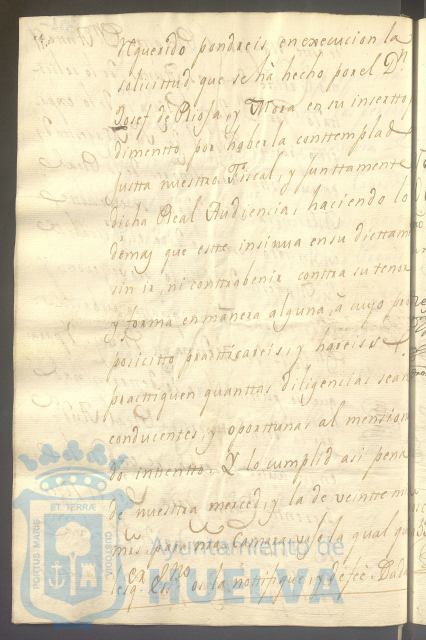 requerido pondreis, en execucion la
solicittud que se hà hecho por el Dn.
Josef de Riosa, y Mora en su insertto
dimentto, por haberla conttemplad
justta nuestro Fiscal, y Junttamente
dicha Real Audiencia, haciendo lo
demas que estte insinua en su dicttam
sin ir, ni conttrabenir contra su tenor
y forma en manera alguna, à cuyo pro
posicitto practticareis, y hareis se
practtiquen quanttas diligencias sean
conducentes, y oporttunas al mension
do intentto. Y lo cumplid asi pena
de nuestra merced, y la de veintte mi
mrs. para nra. Camara, vajo la qual
os la nottifique, y de feè. Dada
ET TERRÆ
PORTUS MARIS
CUSTODIA
Ayuntamiento de
HUELVA